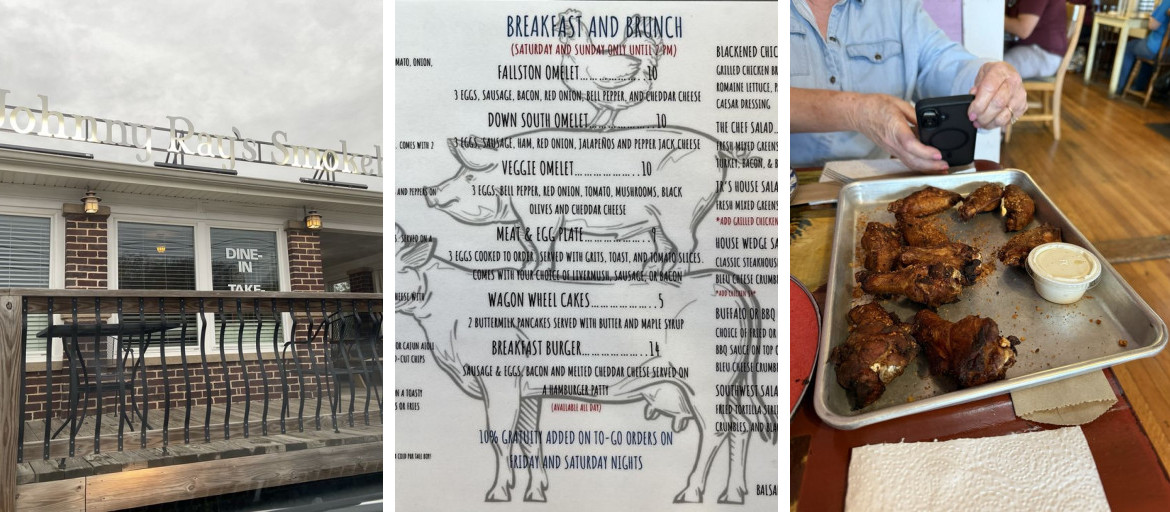 Johnny Ray's Smoke
DINE-
IN
TAKE-
BREAKFAST AND BRUNCH
(SATURDAY AND SUNDAY ONLY UNTIL 2 PM)
FALLSTON OMELET.................10
3 EGGS, SAUSAGE, BACON, RED ONION, BELL PEPPER, AND CHEDDAR CHEESE
DOWN SOUTH OMELET.................10
3 EGGS, SAUSAGE, HAM, RED ONION, JALAPEÑOS AND PEPPER JACK CHEESE
VEGGIE OMELET.............10
3 EGGS, BELL PEPPER, RED ONION, TOMATO, MUSHROOMS, BLACK
OLIVES AND CHEDDAR CHEESE
MEAT & EGG PLATE................9
3 EGGS COOKED TO ORDER, SERVED WITH GRITS, TOAST, AND TOMATO SLICES.
COMES WITH YOUR CHOICE OF LIVERMUSH, SAUSAGE, OR BACON
WAGON WHEEL CAKES................5
2 BUTTERMILK PANCAKES SERVED WITH BUTTER AND MAPLE SYRUP
BREAKFAST BURGER................14
SAUSAGE & EGGS, BACON AND MELTED CHEDDAR CHEESE SERVED ON
A HAMBURGER PATTY
(AVAILABLE ALL DAY)
10% GRATUITY ADDED ON TO-GO ORDERS ON
FRIDAY AND SATURDAY NIGHTS
MATO, ONION,
COMES WITH 2
AND PEPPERS ON
SERVED ON A
CHEESE WITH
OR CAJUN AIOLI
-CUT CHIPS
N A TOAST!
S OR FRIES
BLACKENED CHIC
GRILLED CHICKEN BR
ROMAINE LETTUCE, P
CAESAR DRESSING
THE CHEF SALAD
FRESH MIXED GREENS
TURKEY, BACON, & B
JR'S HOUSE SALA
FRESH MIXED GREENS
*ADD GRILLED CHICKEN
HOUSE WEDGE SA
CLASSIC STEAKHOUS
BLEU CHEESE CRUMB
*ADD CHICKEN
BUFFALO OR BBQ
CHOICE OF FRIED OR
BBQ SAUCE ON TOP O
BLEU CHEESE CRUMB
SOUTHWEST SALA
FRIED TORTILLA STRI
CRUMBLES, AND BLA
BALSA